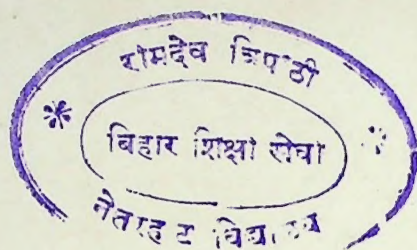 रामदेव त्रिपाठी
बिहार शिक्षा सेवा
नेतरहाट विद्यालय